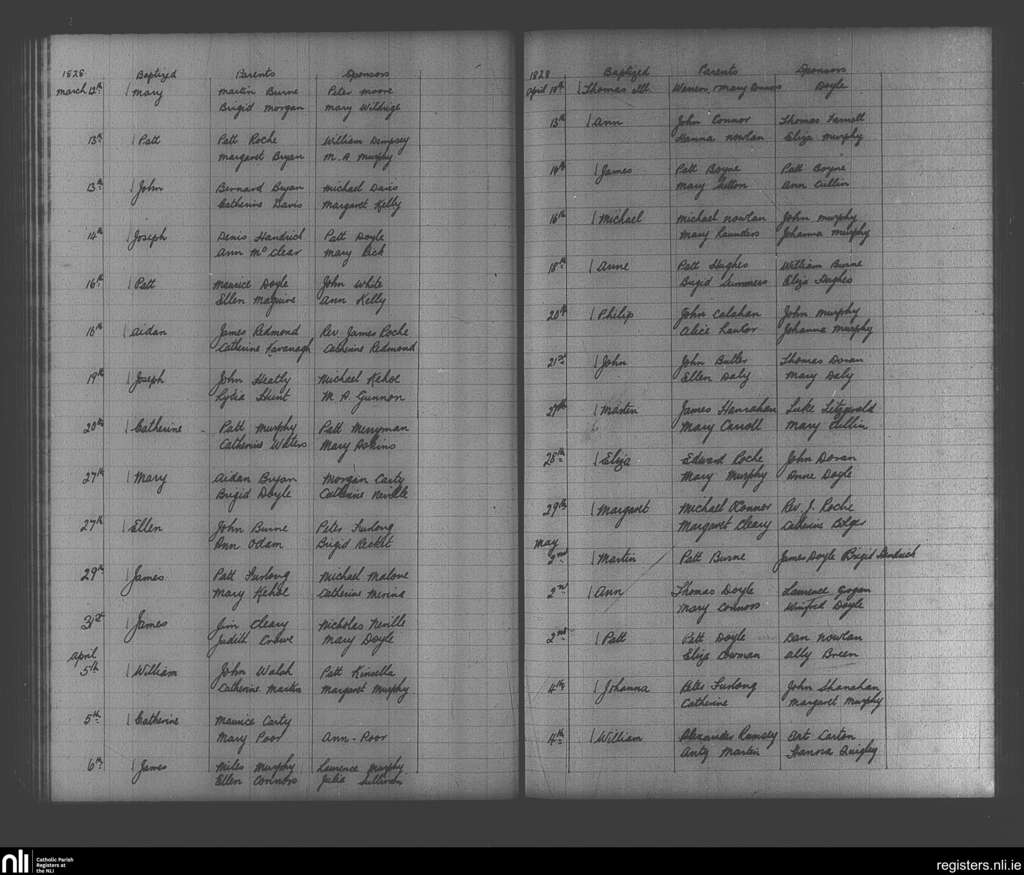 1828 Baptized Parents Sponsors
March 12th Mary Martin Burne Peter Moore
Brigid Morgan Mary Wildrige
13th Patt Patt Roche William Dempsey
Margaret Bryan M. A Murphy
13th John Bernard Bryan Michael Davis
Catherine Davis Margaret Kelly
14th Joseph Denis Handrich Patt Doyle
Ann Mc Clear Mary
16th Patt Maurice Doyle John White
Ellen Maguire Ann Kelly
18th Aidan James Redmond Rev. James Roche
Catherine Kavanagh Catherine Redmond
19th Joseph John Heatly Michael Kehoe
Lylia Hunt M. A. Gunnon
20th Catherine Patt Murphy Patt Merryman
Catherine Waters Mary Askins
27th Mary Aidan Bryan Morgan Carty
Brigid Doyle Catherine Neville
27th Ellen John Burne Peter Furlong
Ann Odam Brigid Recket
29th James Patt Furlong Michael Malone
Mary Kehoe Catherine
31st James Jim Cleary Nicholas Neville
Judith Crowe Mary Doyle
April
5th William John Walsh Patt Kinsella
Catherine Martin Margaret Murphy
5th Catherine Maurice Carty
Mary Poor Ann Poor
6th James Miles Murphy Laurence Murphy
Ellen Connors Julia Sullivan
1828 Baptized Parents Sponsors
April Thomas Mary Connors Doyle
13th Ann John Connor Thomas
Hanna Nowlan Eliza Murphy
14th James Patt Boyne Patt Boyne
Mary Sutton Ann Cullin
16th Michael Michael Nowlan John Murphy
Mary Saunders Johanna Murphy
18th Anne Patt Hughes William Burne
Brigid Summers Eliza Hughes
20th Philip John Calahan John Murphy
Alice Johanna Murphy
21st John John Butler Thomas Doran
Ellen Daly Mary Daly
27th Martin James Hanrahan Luke Fitzgerald
Mary Carroll Mary Cullin
28th Eliza Edward Roche John Doran
Mary Murphy Anne Doyle
29th Margaret Michael O'Connor Rev. J. Roche
Margaret Cleary Catherine Bolger
May
2nd Martin Patt Burne James Doyle Brigid Handrich
2nd Ann Thomas Doyle Laurence Gogan
Mary Connors Winifred Doyle
2nd Patt Patt Doyle Dan Nowlan
Eliza Cowman Ally Breen
4th Johanna Peter Furlong John Shanahan
Catherine Margaret Murphy
4th William Alexander Ramsey Art Carton
Anty Martin Hanora Quigley
nli Catholic Parish
Registers at
the NLI
registers.nli.ie